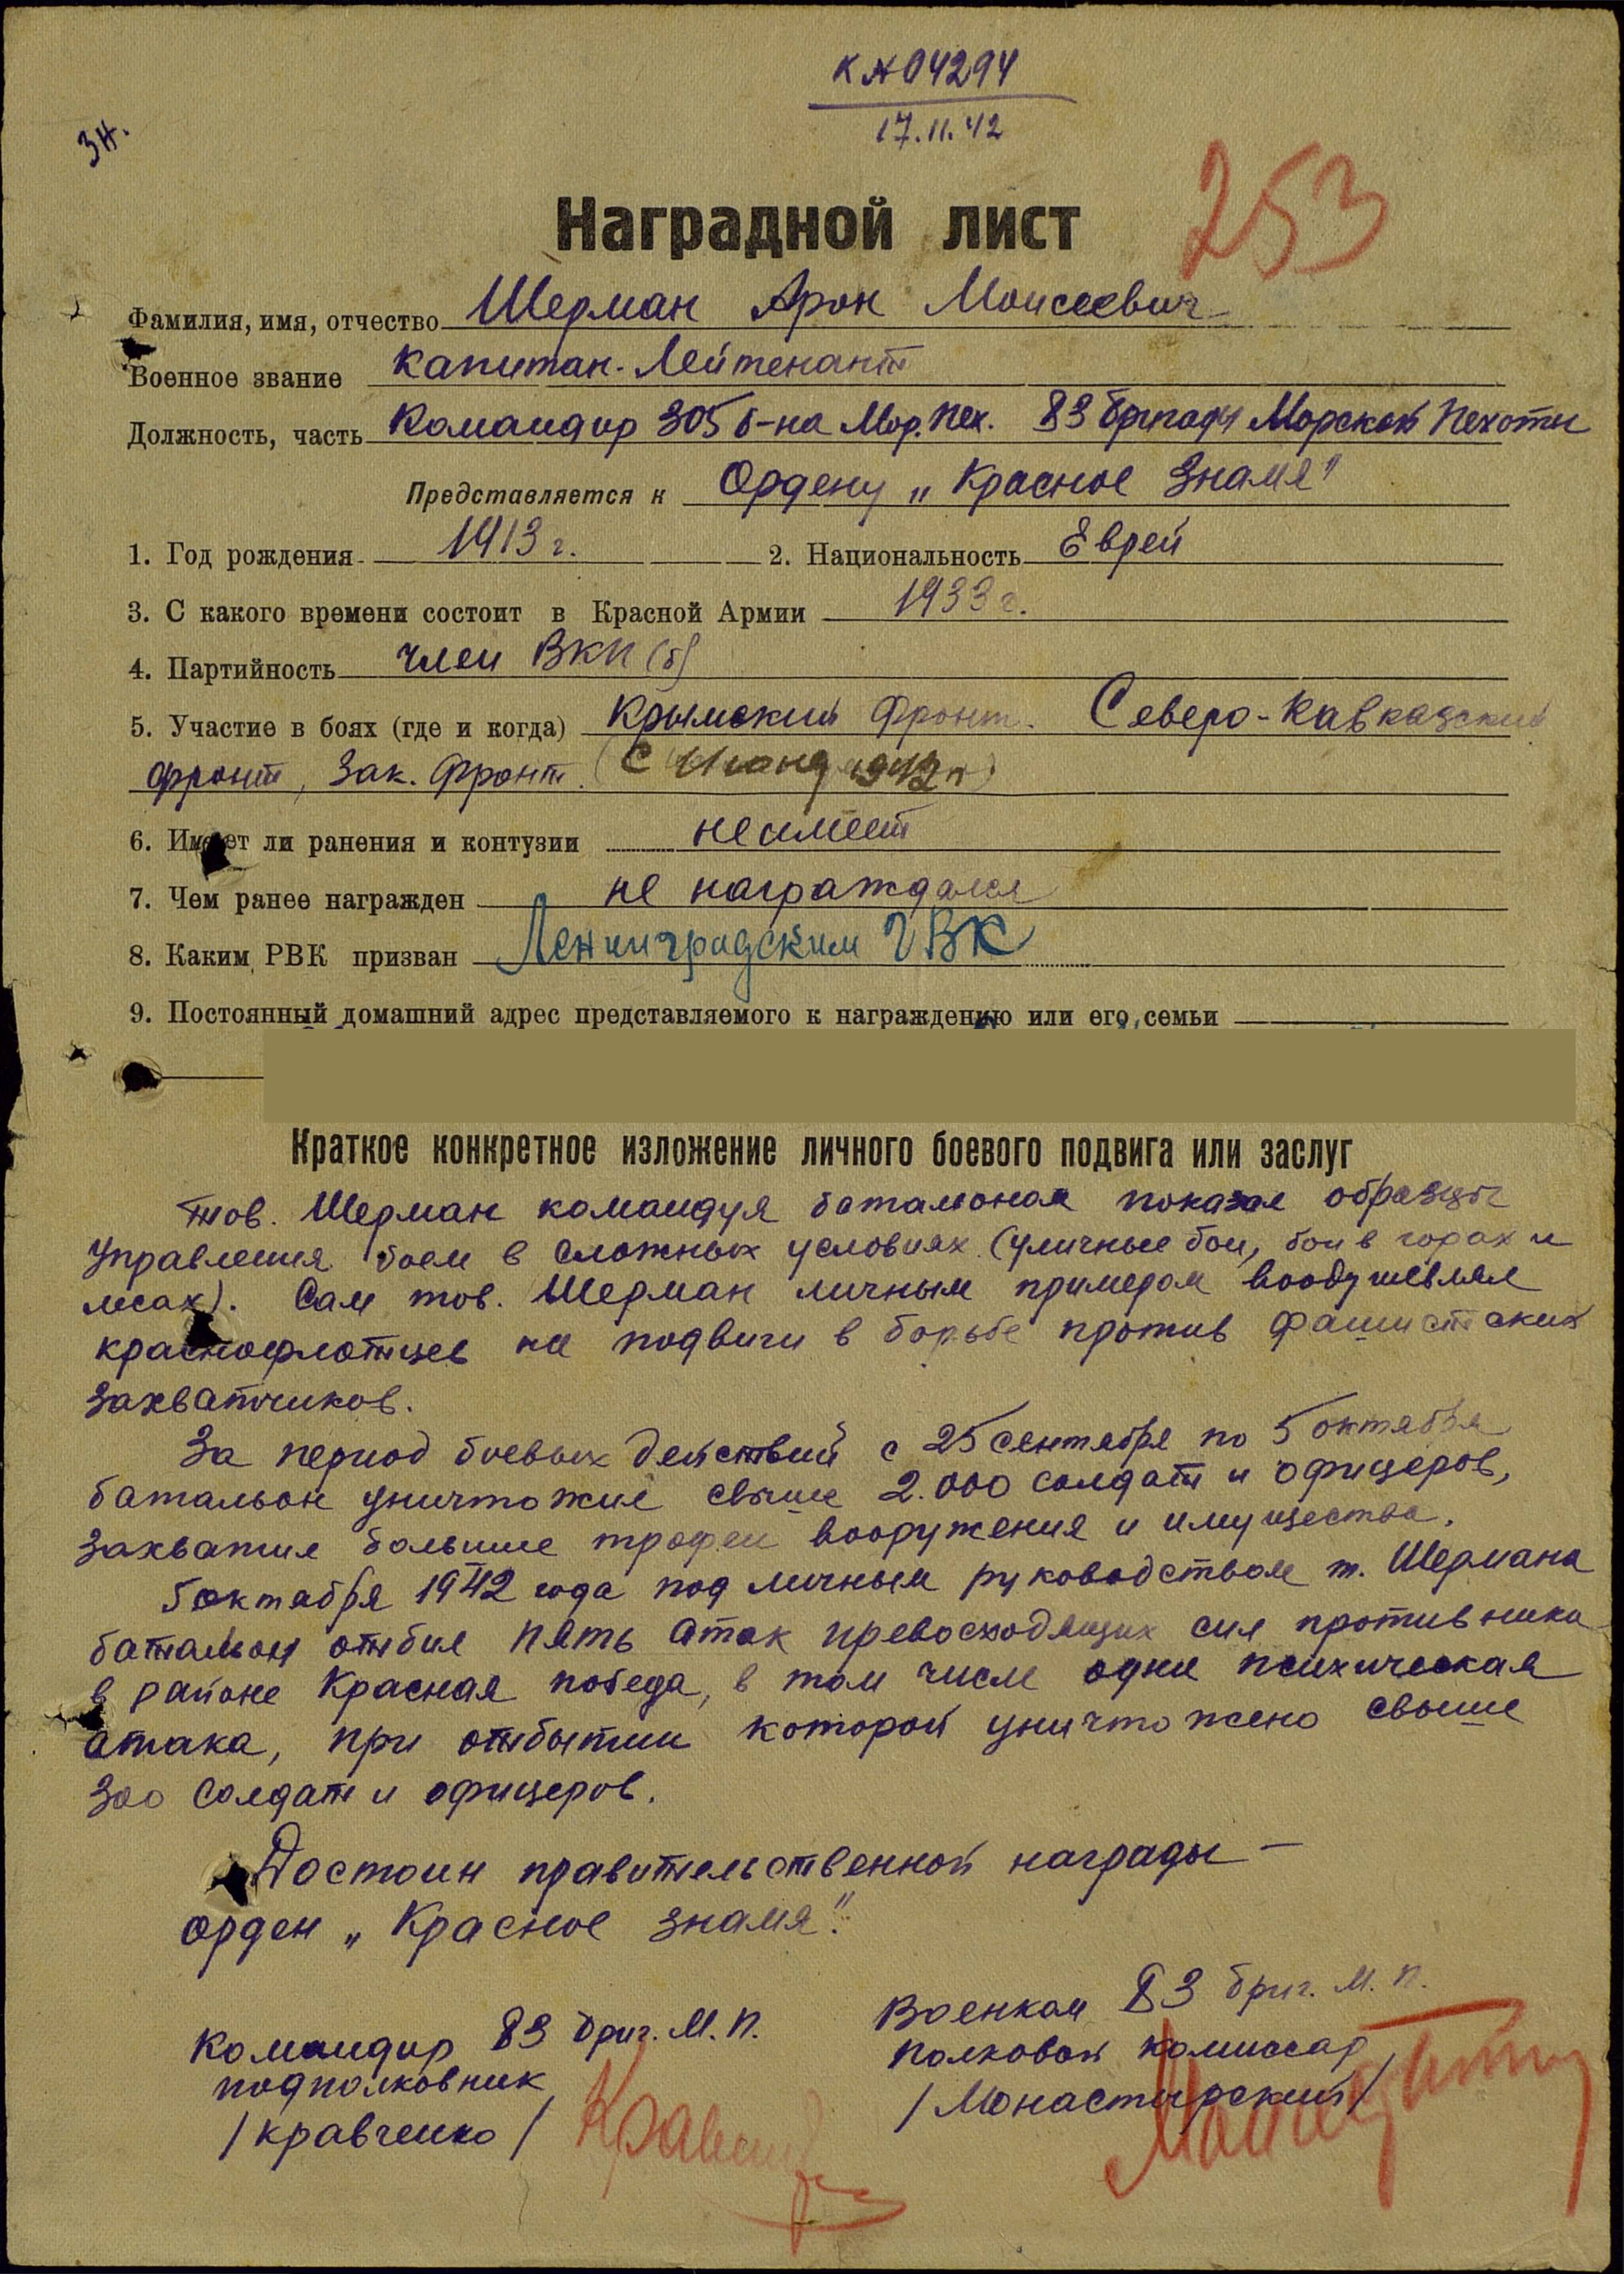 К №04294
17.11.42
Зн.
253
Наградной лист
Фамилия, имя, отчество Шерман Арон Моисеевич
Военное звание Капитан-Лейтенант
Должность, часть Командир 305 б-на Мор.Пех. 83 бригады Морской Пехоты
Представляется к Ордену „Красное Знамя"
1. Год рождения 1913 г. 2. Национальность Еврей
3. С какого времени состоит в Красной Армии 1933 г.
4. Партийность член ВКП(б)
5. Участие в боях (где и когда) Крымский Фронт. Северо-Кавказский
фронт, Зак. Фронт.
6. Имеет ли ранения и контузии не имеет
7. Чем ранее награжден не награждался
8. Каким РВК призван Ленинградским ГВК
9. Постоянный домашний адрес представляемого к награждению или его семьи
Краткое конкретное изложение личного боевого подвига или заслуг
Тов. Шерман командуя батальоном показал образцы
управления боем в сложных условиях (уличные бои, бои в горах и
лесах). Сам тов. Шерман личным примером воодушевлял
краснофлотцев на подвиги в борьбе против фашистских
захватчиков.
За период боевых действий с 25 сентября по 5 октября
батальон уничтожил свыше 2.000 солдат и офицеров,
захватил большие трофеи вооружения и имущества.
5 октября 1942 года под личным руководством т. Шермана
батальон отбил пять атак превосходящих сил противника
в районе Красная победа, в том числе одна психическая
атака, при отбытии которой уничтожено свыше
300 солдат и офицеров.
Достоин правительственной награды –
орден „Красное знамя".
Командир 83 бриг. М.П.
подполковник
/Кравченко/
Военком 83 бриг. М.П.
полковой комиссар
/Монастырский/